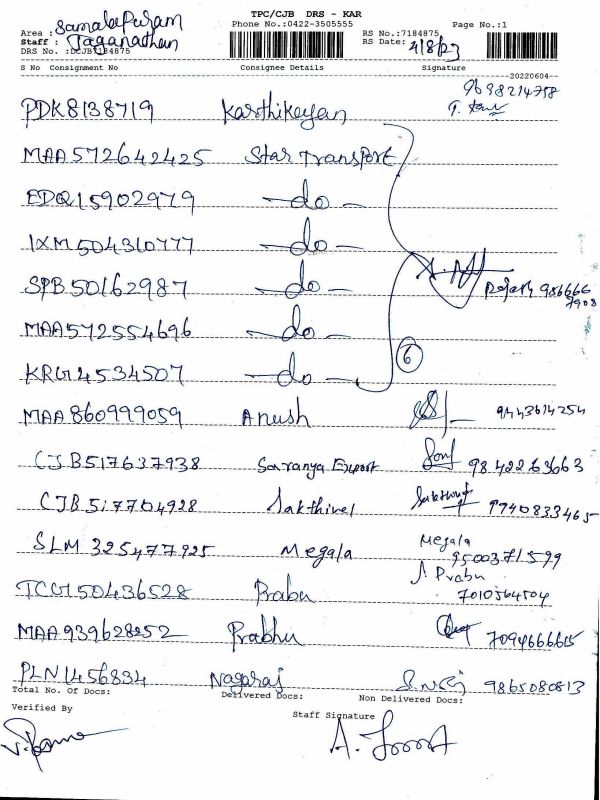 TPC/CJB DRS - KAR
Area : Samalapuram Phone No.:0422-3505555 RS No.:7184875 Page No.:1
Staff : Jaganathan RS Date: 4/8/23
DRS No. :DCJB7184875
S No Consignment No Consignee Details Signature
20220604
PDK8138719 Karthikeyan 9698214758
MAA572642425 Star Transport
EDQ15902979 -do-
IXM504310777 -do-
SPB50162987 -do- Rajesh 986666
7908
MAA572554696 -do-
KRG14534507 -do- 6
MAA860999059 Anush 9443614254
CJB517637938 Saranya Export 9842263663
CJB517704928 Sakthivel Sakthivel 9740833465
SLM325477925 Megala Megala
9500371599
TCG150436528 Prabu J. Prabu
7010564504
MAA939628252 Prabhu 7094666615
PLN1456834 Nagaraj 9865080813
Total No. Of Docs: Delivered Docs: Non Delivered Docs:
Verified By Staff Signature